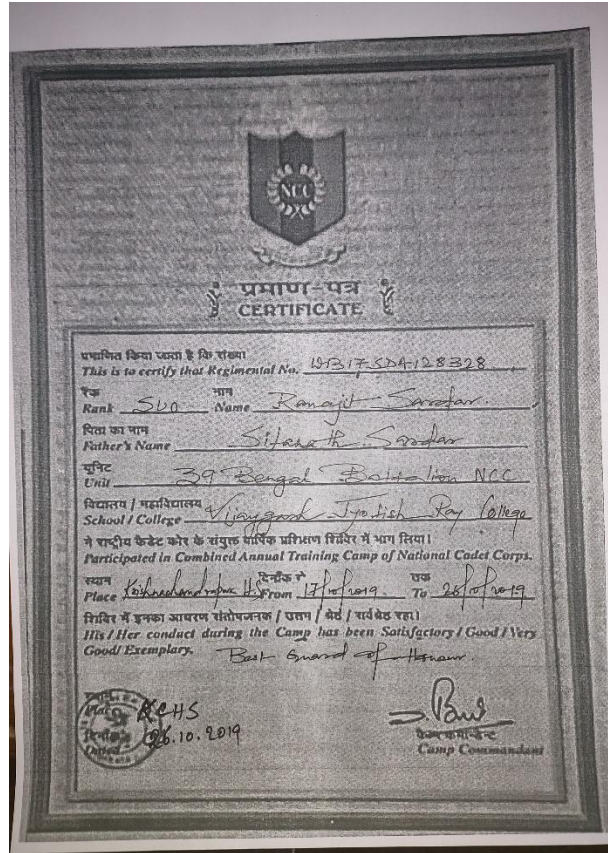 NCC
प्रमाण-पत्र
CERTIFICATE
प्रमाणित किया जाता है कि संख्या
This is to certify that Regimental No. WB17SDA128328
रैंक नाम
Rank SUO Name Ranajit Sardar
पिता का नाम
Father's Name Sitanath Sardar
यूनिट
Unit 39 Bengal Battalion NCC
विद्यालय / महाविद्यालय
School / College Vijaygarh Jyotish Ray College
ने राष्ट्रीय कैडेट कोर के संयुक्त वार्षिक प्रशिक्षण शिविर में भाग लिया।
Participated in Combined Annual Training Camp of National Cadet Corps.
स्थान दिनाँक से तक
Place Krishnachandrapur H.S From 17/10/2019 To 26/10/2019
शिविर में इनका आचरण संतोषजनक / उत्तम / श्रेष्ठ / सर्वश्रेष्ठ रहा।
His / Her conduct during the Camp has been Satisfactory / Good / Very
Good / Exemplary. Best Guard of Honour.
Place KCHS
दिनाँक
Dated 26.10.2019
कैम्प कमान्डेन्ट
Camp Commandant